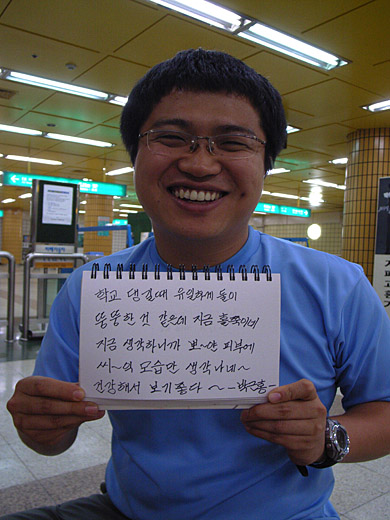 학교 댕길때 유일하게 둘이
뚱뚱한 것 같은데 지금 홀쭉이네
지금 생각하니까 보~얀 피부에
씨~익 모습만 생각나네~
건강해서 보기 좋다 ~ -박근홍-